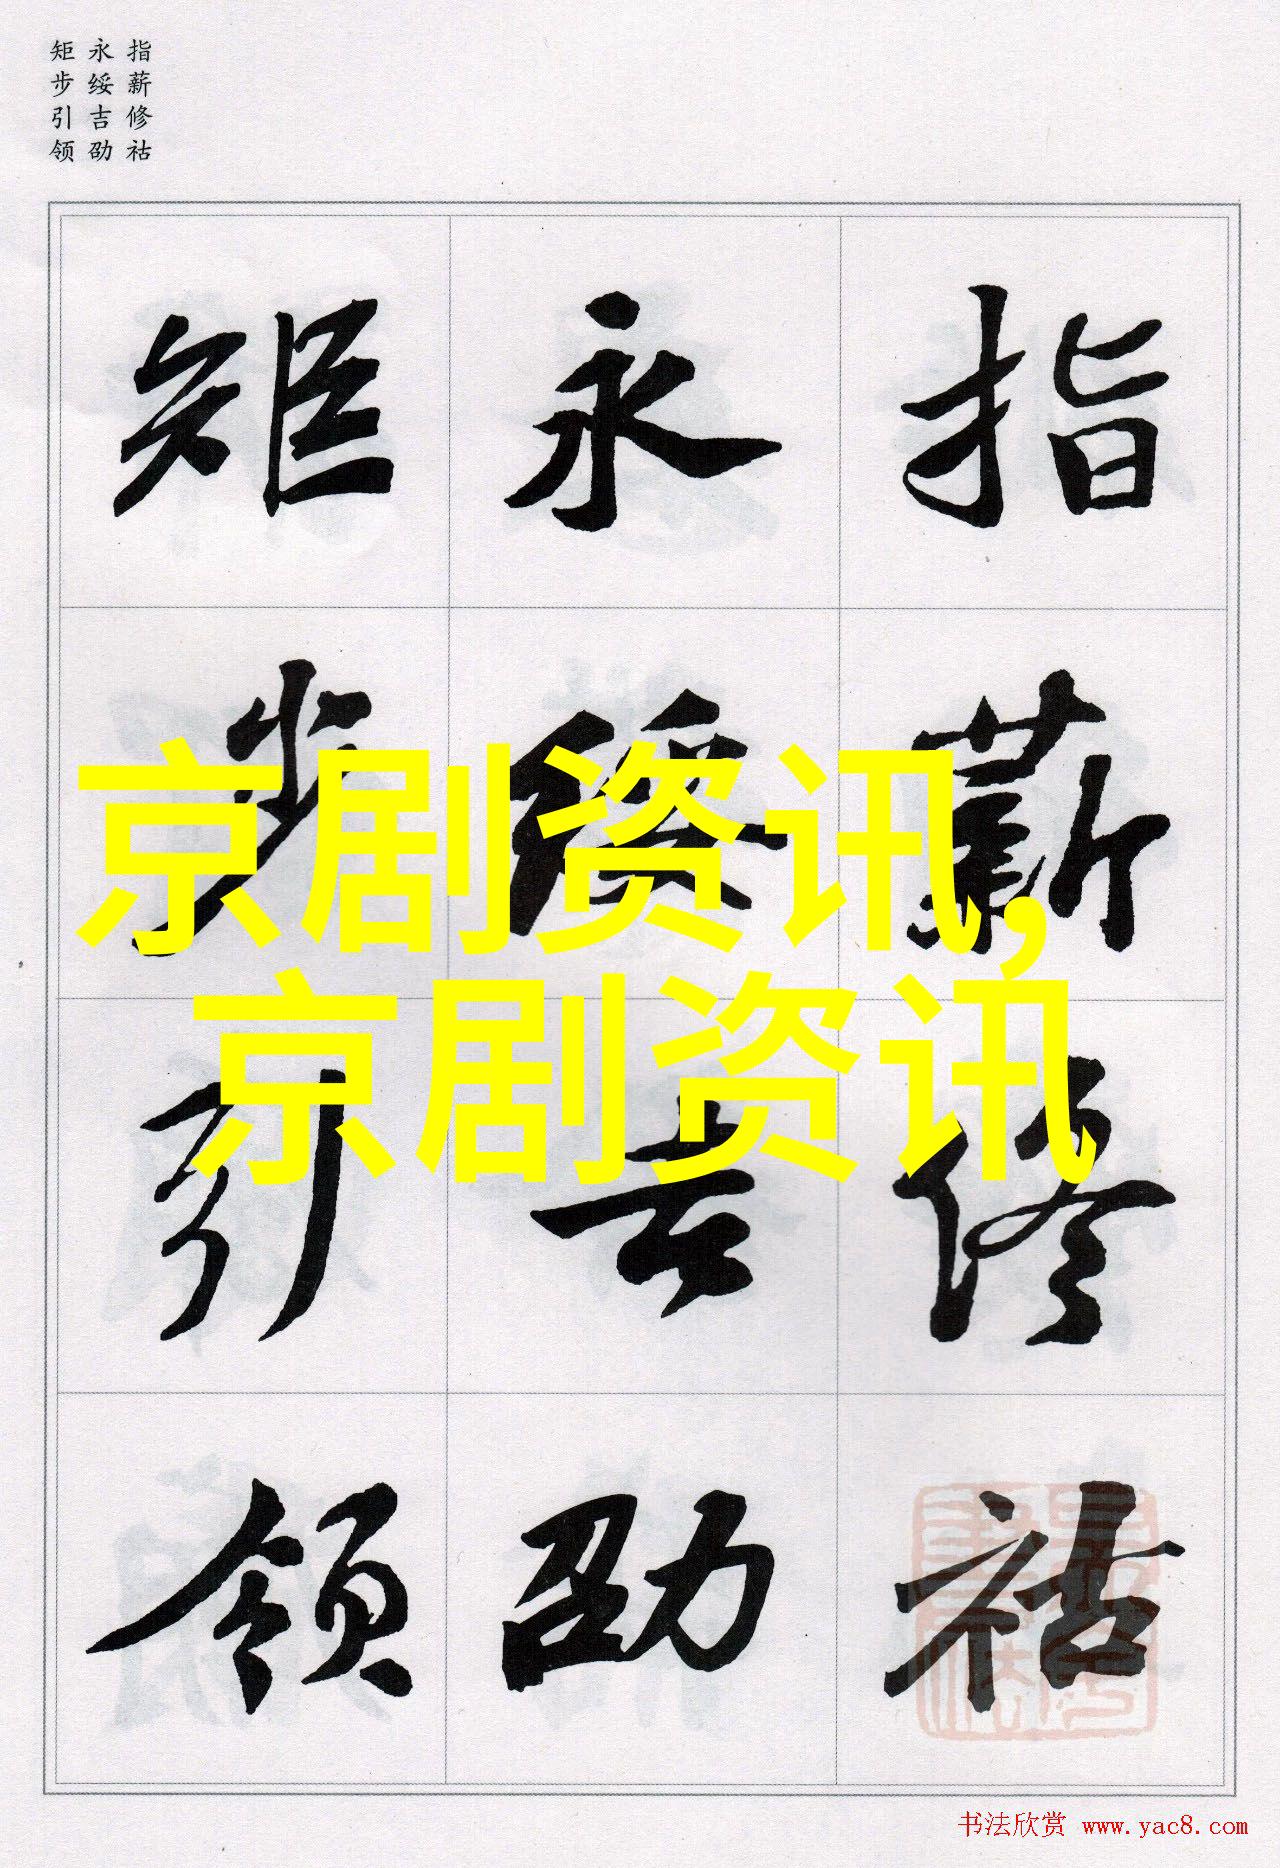 指薪修祜
永绥吉劭
矩步引领
指薪修祜
永绥吉劭
矩步引领
京剧资讯,
京剧资讯
书法欣赏 www.yac8.com